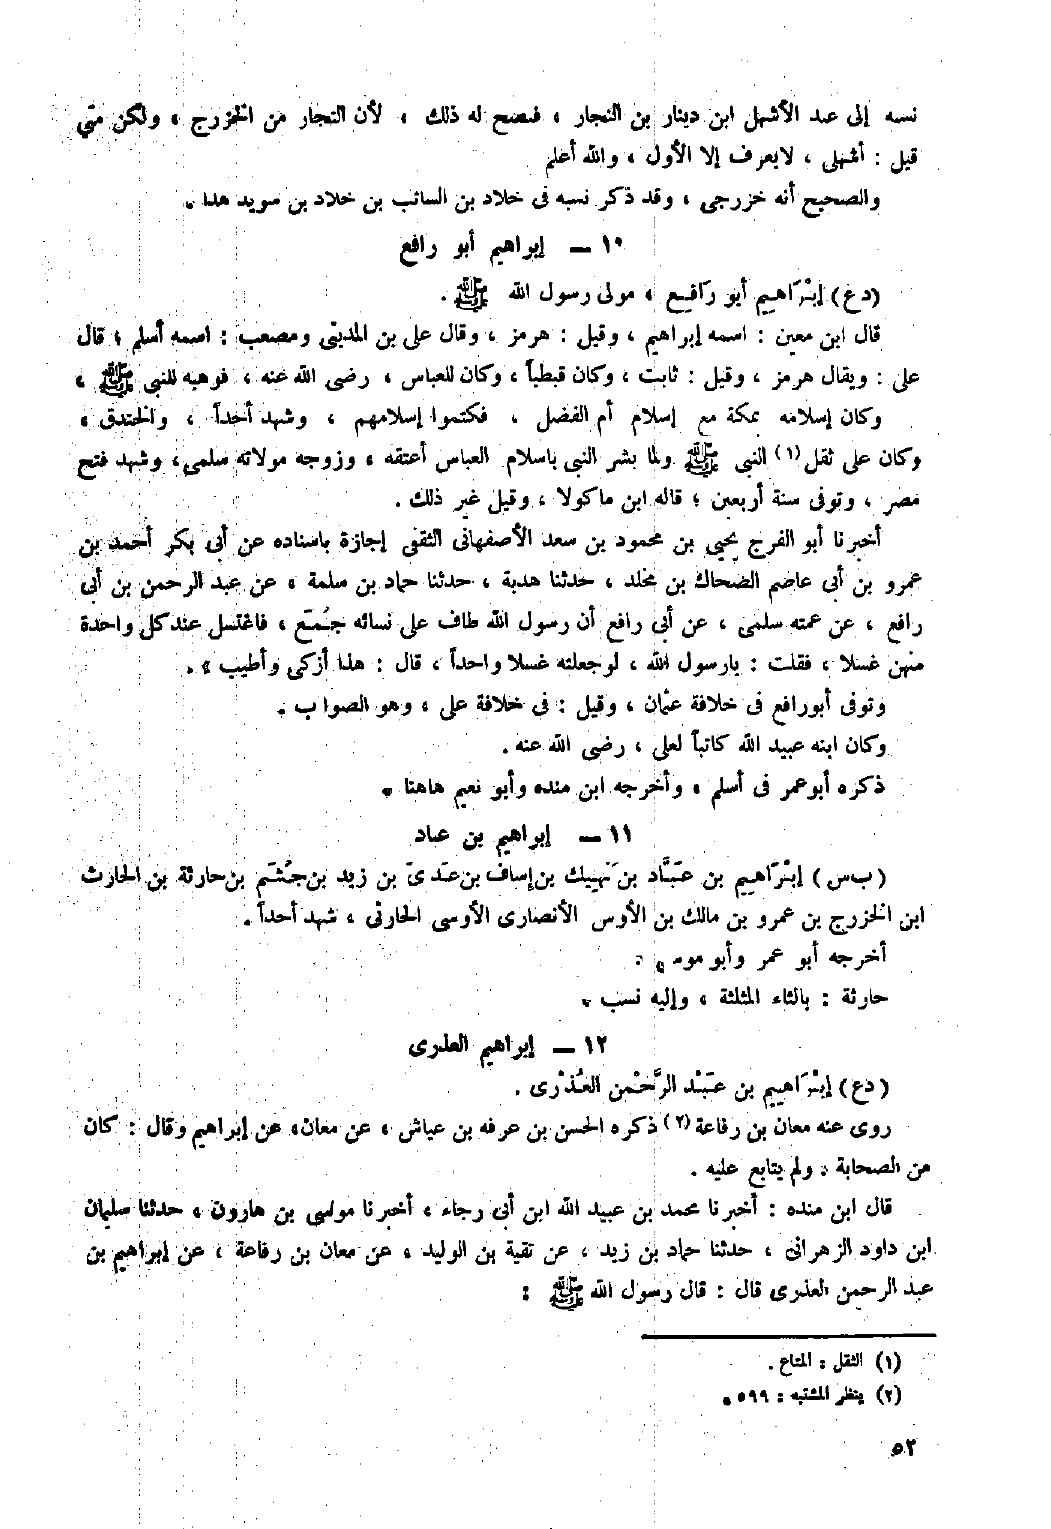 نسبه إلى عبد الأشهل ابن دينار بن النجار ، فيصح له ذلك ، لأن النجار من الخزرج ، ولكن متى
قيل : أشهلى ، لايعرف إلا الأول ، والله أعلم
والصحيح أنه خزرجى ، وقد ذكر نسبه فى خلاد بن السائب بن خلاد بن سويد هذا .
١٠ — إبراهيم أبو رافع
(دع) إبْرَاهيم أبو رَافيع ، مولى رسول الله ﷺ .
قال ابن معين : اسمه إبراهيم ، وقيل : هرمز ، وقال على بن المدينى ومصعب : اسمه أسلم ؛ قال
على : ويقال هرمز ، وقيل : ثابت ، وكان قبطياً ، وكان للعباس ، رضى الله عنه ، فوهبه للنبى ﷺ ،
وكان إسلامه بمكة مع إسلام أم الفضل ، فكتموا إسلامهم ، وشهد أحداً ، والخندق ،
وكان على ثقل (١) النبى ﷺ ولما بشر النبى باسلام العباس أعتقه ، وزوجه مولاته سلمى، وشهد فتح
مصر ، وتوفى سنة أربعين ؛ قاله ابن ماكولا ، وقيل غير ذلك .
أخبرنا أبو الفرج يحيى بن محمود بن سعد الأصفهانى الثقفى إجازة باسناده عن أبى بكر أحمد بن
عمرو بن أبى عاصم الضحاك بن مخلد ، حدثنا هدبة ، حدثنا حماد بن سلمة ، عن عبد الرحمن بن أبى
رافع ، عن عمته سلمى ، عن أبى رافع أن رسول الله طاف على نسائه جُمَع ، فاغتسل عندكل واحدة
منهن غسلا ، فقلت : يارسول الله ، لوجعلته غسلا واحداً ، قال : هذا أزكى وأطيب » .
وتوفى أبورافع فى خلافة عثمان ، وقيل : فى خلافة على ، وهو الصواب .
وكان ابنه عبيد الله كاتباً لعلى ، رضى الله عنه .
ذكره أبوعمر فى أسلم ، وأخرجه ابن منده وأبو نعيم هاهنا .
١١ — إبراهيم بن عباد
(ب س) إبْرَاهيم بن عَبَّاد بن نَهيك بن إساف بن عَدَىّ بن زيد بن جُشَم بن حارثة بن الحارث
ابن الخزرج بن عمرو بن مالك بن الأوس الأنصارى الأوسى الحارثى ، شهد أحداً .
أخرجه أبو عمر وأبو موسى .
حارثة : بالثاء المثلثة ، وإليه نسب .
١٢ — إبراهيم العذرى
(دع) إبْرَاهيم بن عَبْد الرَّحْمن العُذْرى .
روى عنه معان بن رفاعة (٢) ذكره الحسن بن عرفه بن عياش ، عن معان، عن إبراهيم وقال : كان
من الصحابة ، ولم يتابع عليه .
قال ابن منده : أخبرنا محمد بن عبيد الله ابن أبى رجاء ، أخبرنا موسى بن هارون ، حدثنا سليمان
ابن داود الزهرانى ، حدثنا حماد بن زيد ، عن تقية بن الوليد ، عن معان بن رفاعة ، عن إبراهيم بن
عبد الرحمن العذرى قال : قال رسول الله ﷺ :
(١) الثقل : المتاع .
(٢) ينظر المشتبه : ٥٩٩ .
٥٢